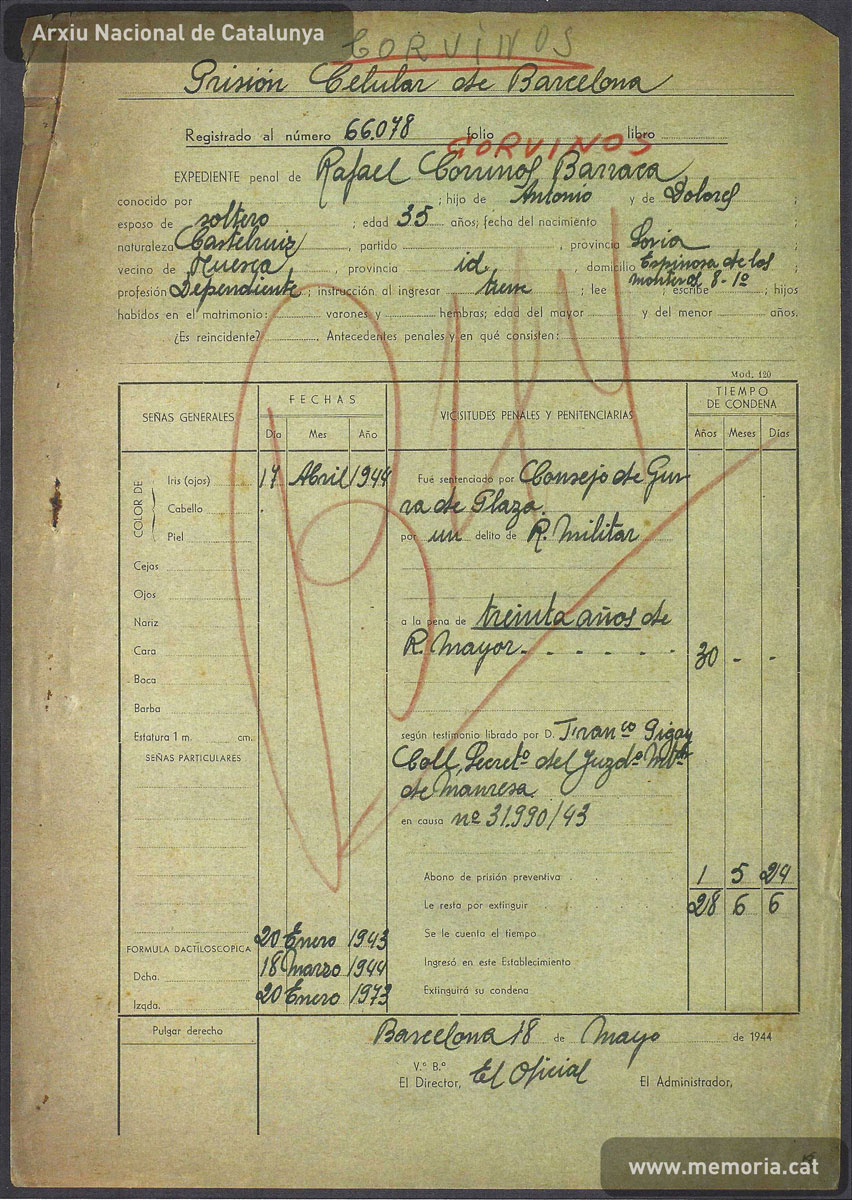 Arxiu Nacional de Catalunya
CORVINOS
Prisión Celular de Barcelona
Registrado al número 66.078 folio libro
CORVINOS
EXPEDIENTE penal de Rafael Corvinos Barraca
conocido por ; hijo de Antonio y de Dolores ;
esposo de soltero ; edad 35 años; fecha del nacimiento ;
naturaleza Castelruiz , partido , provincia Soria ;
vecino de Huesca , provincia id. , domicilio Espinosa de los
Monteros, 8-1º ;
profesión Dependiente ; instrucción al ingresar tiene ; lee , escribe ; hijos
habidos en el matrimonio: varones y hembras; edad del mayor y del menor años.
¿Es reincidente? , Antecedentes penales y en qué consisten:
Mod. 120
SEÑAS GENERALES FECHAS VICISITUDES PENALES Y PENITENCIARIAS TIEMPO DE CONDENA
Día Mes Año Años Meses Días
COLOR DE
Iris (ojos) 17 Abril 1944 Fué sentenciado por Consejo de Gue
Cabello rra de Plaza.
Piel por un delito de R. Militar
Cejas
Ojos
Nariz a la pena de treinta años de
Cara R. Mayor - - - - - - 30 - -
Boca
Barba
Estatura 1 m. cm. según testimonio librado por D. Franco
SEÑAS PARTICULARES Coll, Secretº del Juzdº
de Manresa
en causa nº 31.990/43
Abono de prisión preventiva 1 5 24
Le resta por extinguir 28 6 6
20 Enero 1943 Se le cuenta el tiempo
FORMULA DACTILOSCOPICA
Dcha. 18 Marzo 1944 Ingresó en este Establecimiento
Izqda. 20 Enero 1973 Extinguirá su condena
Pulgar derecho
Barcelona 18 de Mayo de 1944
V.º B.º
El Director, El Oficial El Administrador,
www.memoria.cat